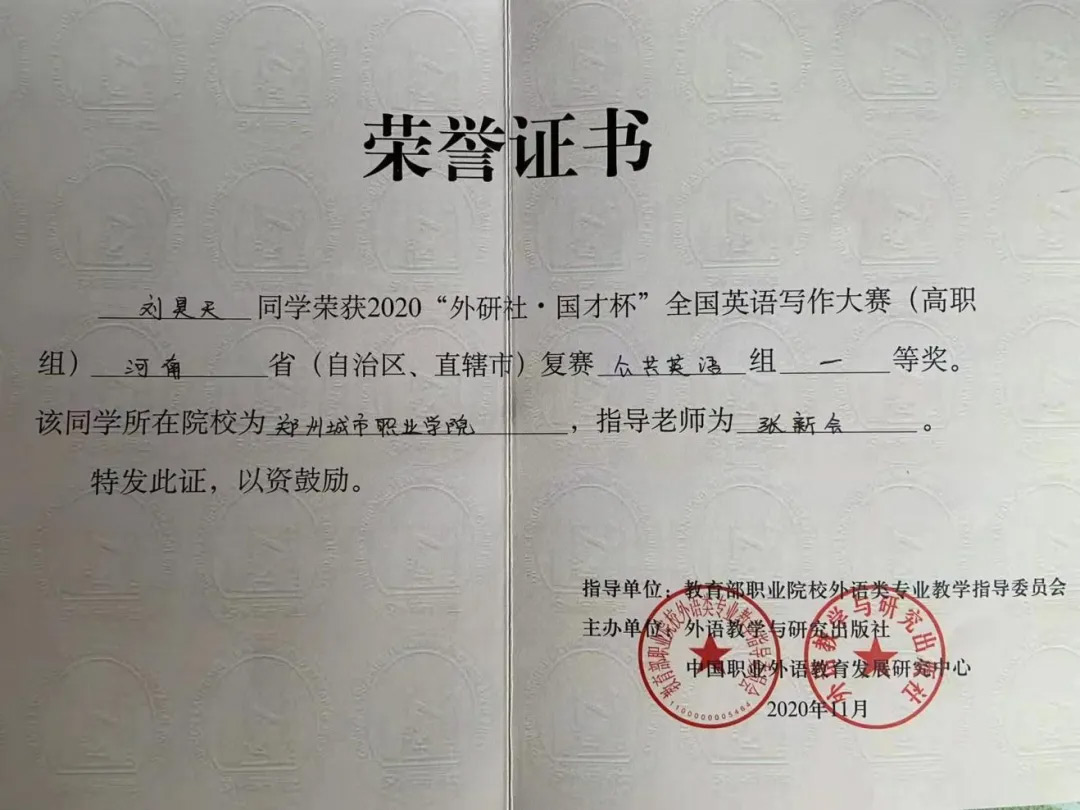 荣誉证书
刘昊天 同学荣获2020“外研社·国才杯”全国英语写作大赛（高职
组） 河南 省（自治区、直辖市）复赛 公共英语 组 一 等奖。
该同学所在院校为 郑州城市职业学院 ，指导老师为 张新会 。
特发此证，以资鼓励。
指导单位：教育部职业院校外语类专业教学指导委员会
主办单位：外语教学与研究出版社
中国职业外语教育发展研究中心
2020年11月
教育部职业院校外语类专业教学指导委员会
1100000005484
外语教学与研究出版社